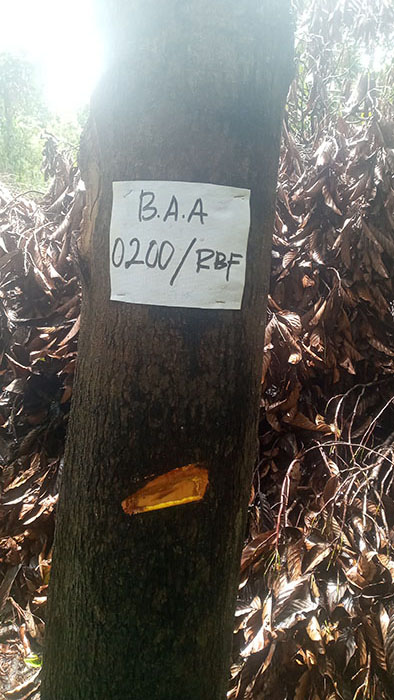 B.A.A
0200/RBF